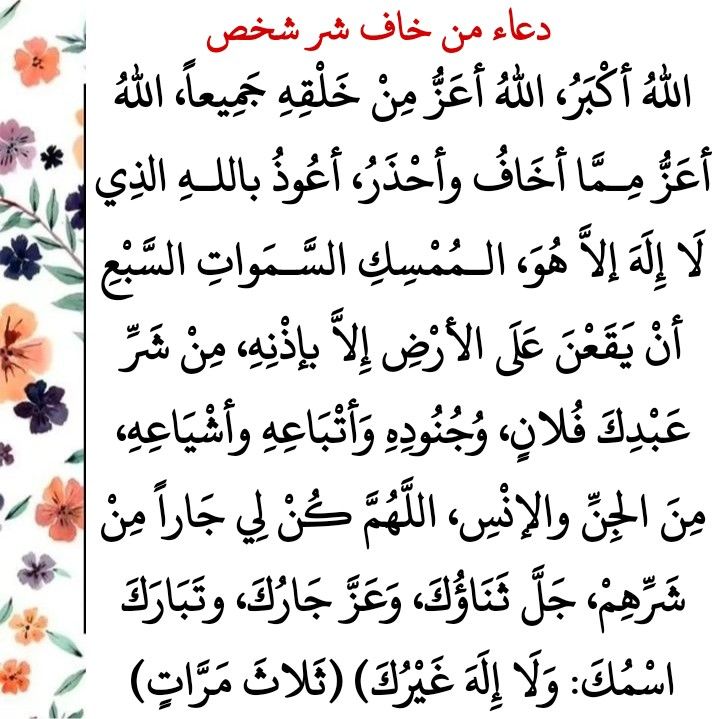 دعاء من خاف شر شخص
اللهُ أكْبَرُ، اللهُ أعَزُّ مِنْ خَلْقِهِ جَمِيعاً، اللهُ
أعَزُّ مِــمَّا أخَافُ وأحْذَرُ، أعُوذُ باللــهِ الذِي
لَا إِلَهَ إلاَّ هُوَ، الــمُمْسِكِ السَّــمَواتِ السَّبْعِ
أنْ يَقَعْنَ عَلَى الأرْضِ إِلاَّ بإذْنِهِ، مِنْ شَرِّ
عَبْدِكَ فُلانٍ، وُجُنُودِهِ وَأتْبَاعِهِ وأشْيَاعِهِ،
مِنَ الجِنِّ والإنْسِ، اللَّهُمَّ كُنْ لِي جَاراً مِنْ
شَرِّهِمْ، جَلَّ ثَنَاؤُكَ، وَعَزَّ جَارُكَ، وتَبَارَكَ
اسْمُكَ: وَلَا إِلَهَ غَيْرُكَ) (ثَلاثَ مَرَّاتٍ)